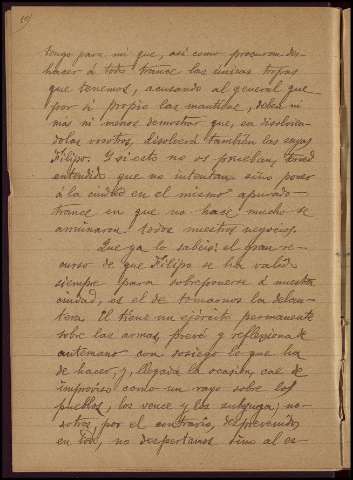 tengo para mi que, así como procuran des-
hacer á todo trance las únicas tropas
que tenemos, acusando al general que
por si propio las mantiene, deben ni
mas ni menos demostrar que, en disolvien-
dolas vosotros, disolverá también las suyas
Filipo. Y si esto no os prueban, tened
entendido que no intentan sino poner
á la ciudad en el mismo apurado
trance en que no hace mucho se
arruinaron todos nuestros negocios.
Que ya lo sabeis: el gran re-
curso de que Filipo se ha valido
siempre para sobreponerse á nuestra
ciudad, es el de tomarnos la delan-
tera. El tiene un ejército permanente
sobre las armas, prevé y reflexiona de
antemano con sosiego lo que ha
de hacer, y, llegada la ocasión, cae de
improviso como un rayo sobre los
pueblos, los vence y los subyuga; no-
sotros, por el contrario, desprevenidos
en todo, no despertamos sino al es-